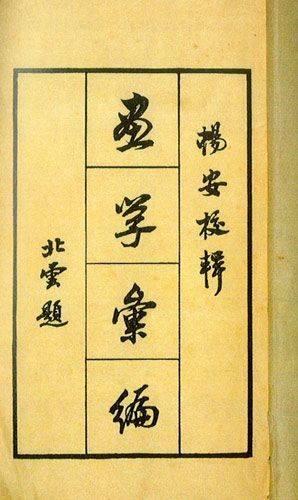 楊安校輯
畫学彙編
北雲題